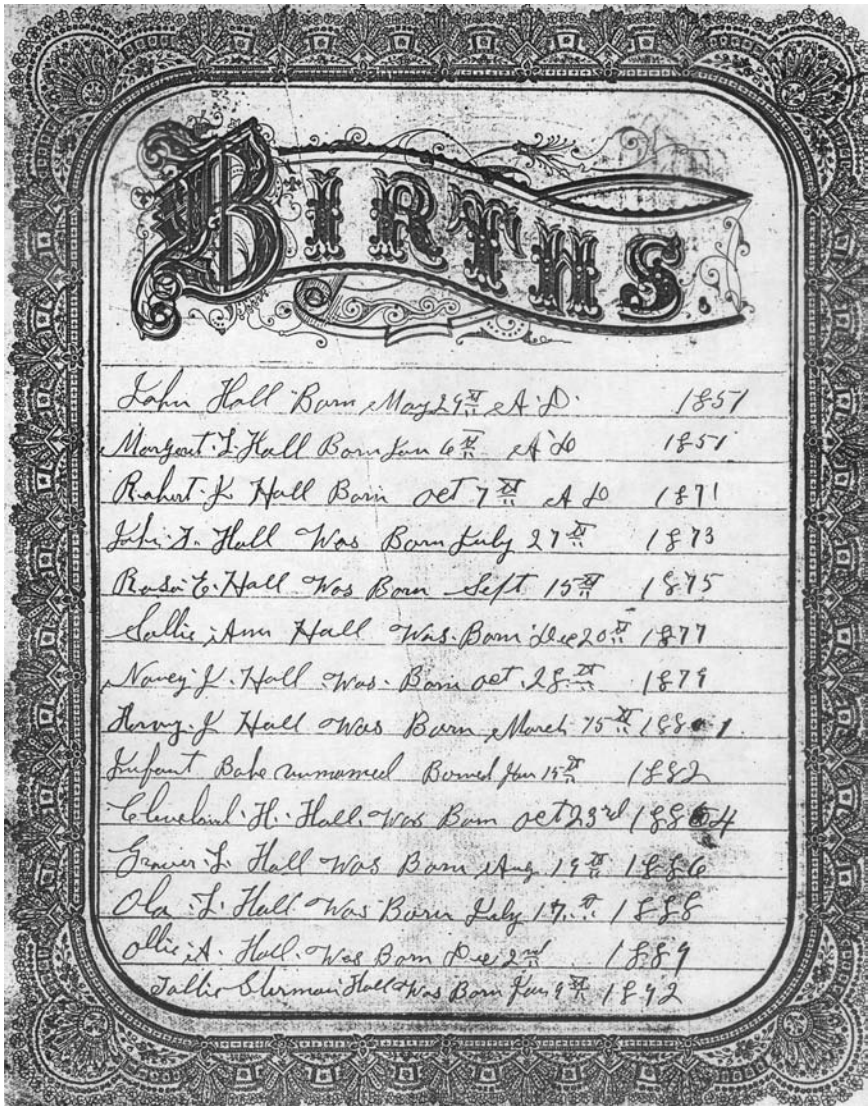 BIRTHS.
John Hall Born May 29th A.D. 1851
Margaret L. Hall Born Jan 6th A D 1851
Robert J. Hall Born Oct 7th A D 1871
John F. Hall Was Born July 27th 1873
Rosa E. Hall Was Born Sept 15th 1875
Sallie Ann Hall Was Born Dec 20th 1877
Nancy J. Hall Was Born Oct. 28th 1879
Hall Was Born March 15th 1881
Infant Babe unnamed Borned Jan 15th 1882
Cleveland H. Hall Was Born Oct 23rd 1884
Grover L. Hall Was Born Aug 19th 1886
Ola L. Hall Was Born July 17th 1888
Ollie A. Hall Was Born Dec 2nd 1889
Hall Was Born Jan 9th 1892